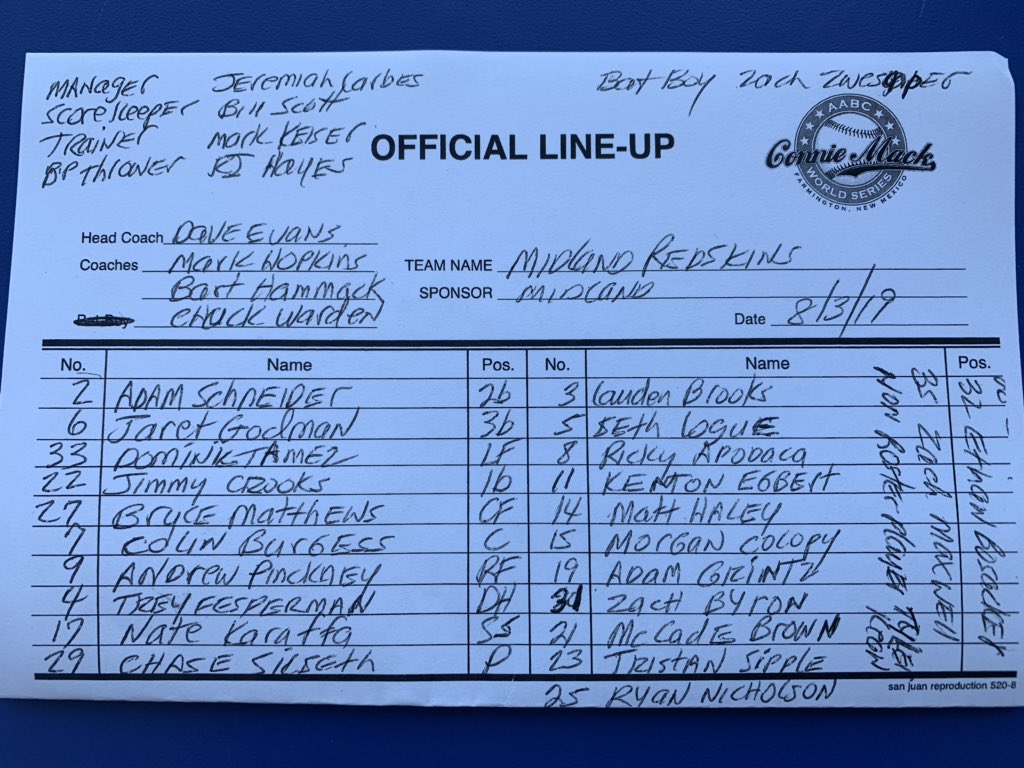 MANAGER Jeremiah Carbes Bat Boy Zach
Scorekeeper Bill Scott
TRAINER Mark Keiser
BP thrower RJ Hayes
OFFICIAL LINE-UP
AABC
Connie Mack
WORLD SERIES
FARMINGTON, NEW MEXICO
Head Coach DAVE EVANS
Coaches Mark Hopkins
Bart Hammack
Chuck Warden
TEAM NAME MIDLAND REDSKINS
SPONSOR MIDLAND
Date 8/3/19
No. Name Pos. No. Name Pos.
2 ADAM SCHNEIDER 2b 3 Landen Brooks
6 Jaret Godman 3b 5 SETH LOGUE
33 DOMINIK TAMEZ LF 8 Ricky APODACA
22 Jimmy CROOKS 1b 11 KENTON EGBERT
27 BRYCE MATTHEWS CF 14 Matt HALEY
7 COLIN BURGESS C 15 MORGAN COLOPY
9 ANDREW PINCKNEY RF 19 ADAM GRINTZ
4 TREY FESPERMAN DH ZACH BYRON
17 Nate Karaffa SS 21 McCADE BROWN
29 CHASE SILSETH P 23 TRISTAN SIPPLE
25 RYAN NICHOLSON
32 ETHAN
35 Zach MAXWELL
NON ROSTER PLAYER TYLER
san juan reproduction 520-8